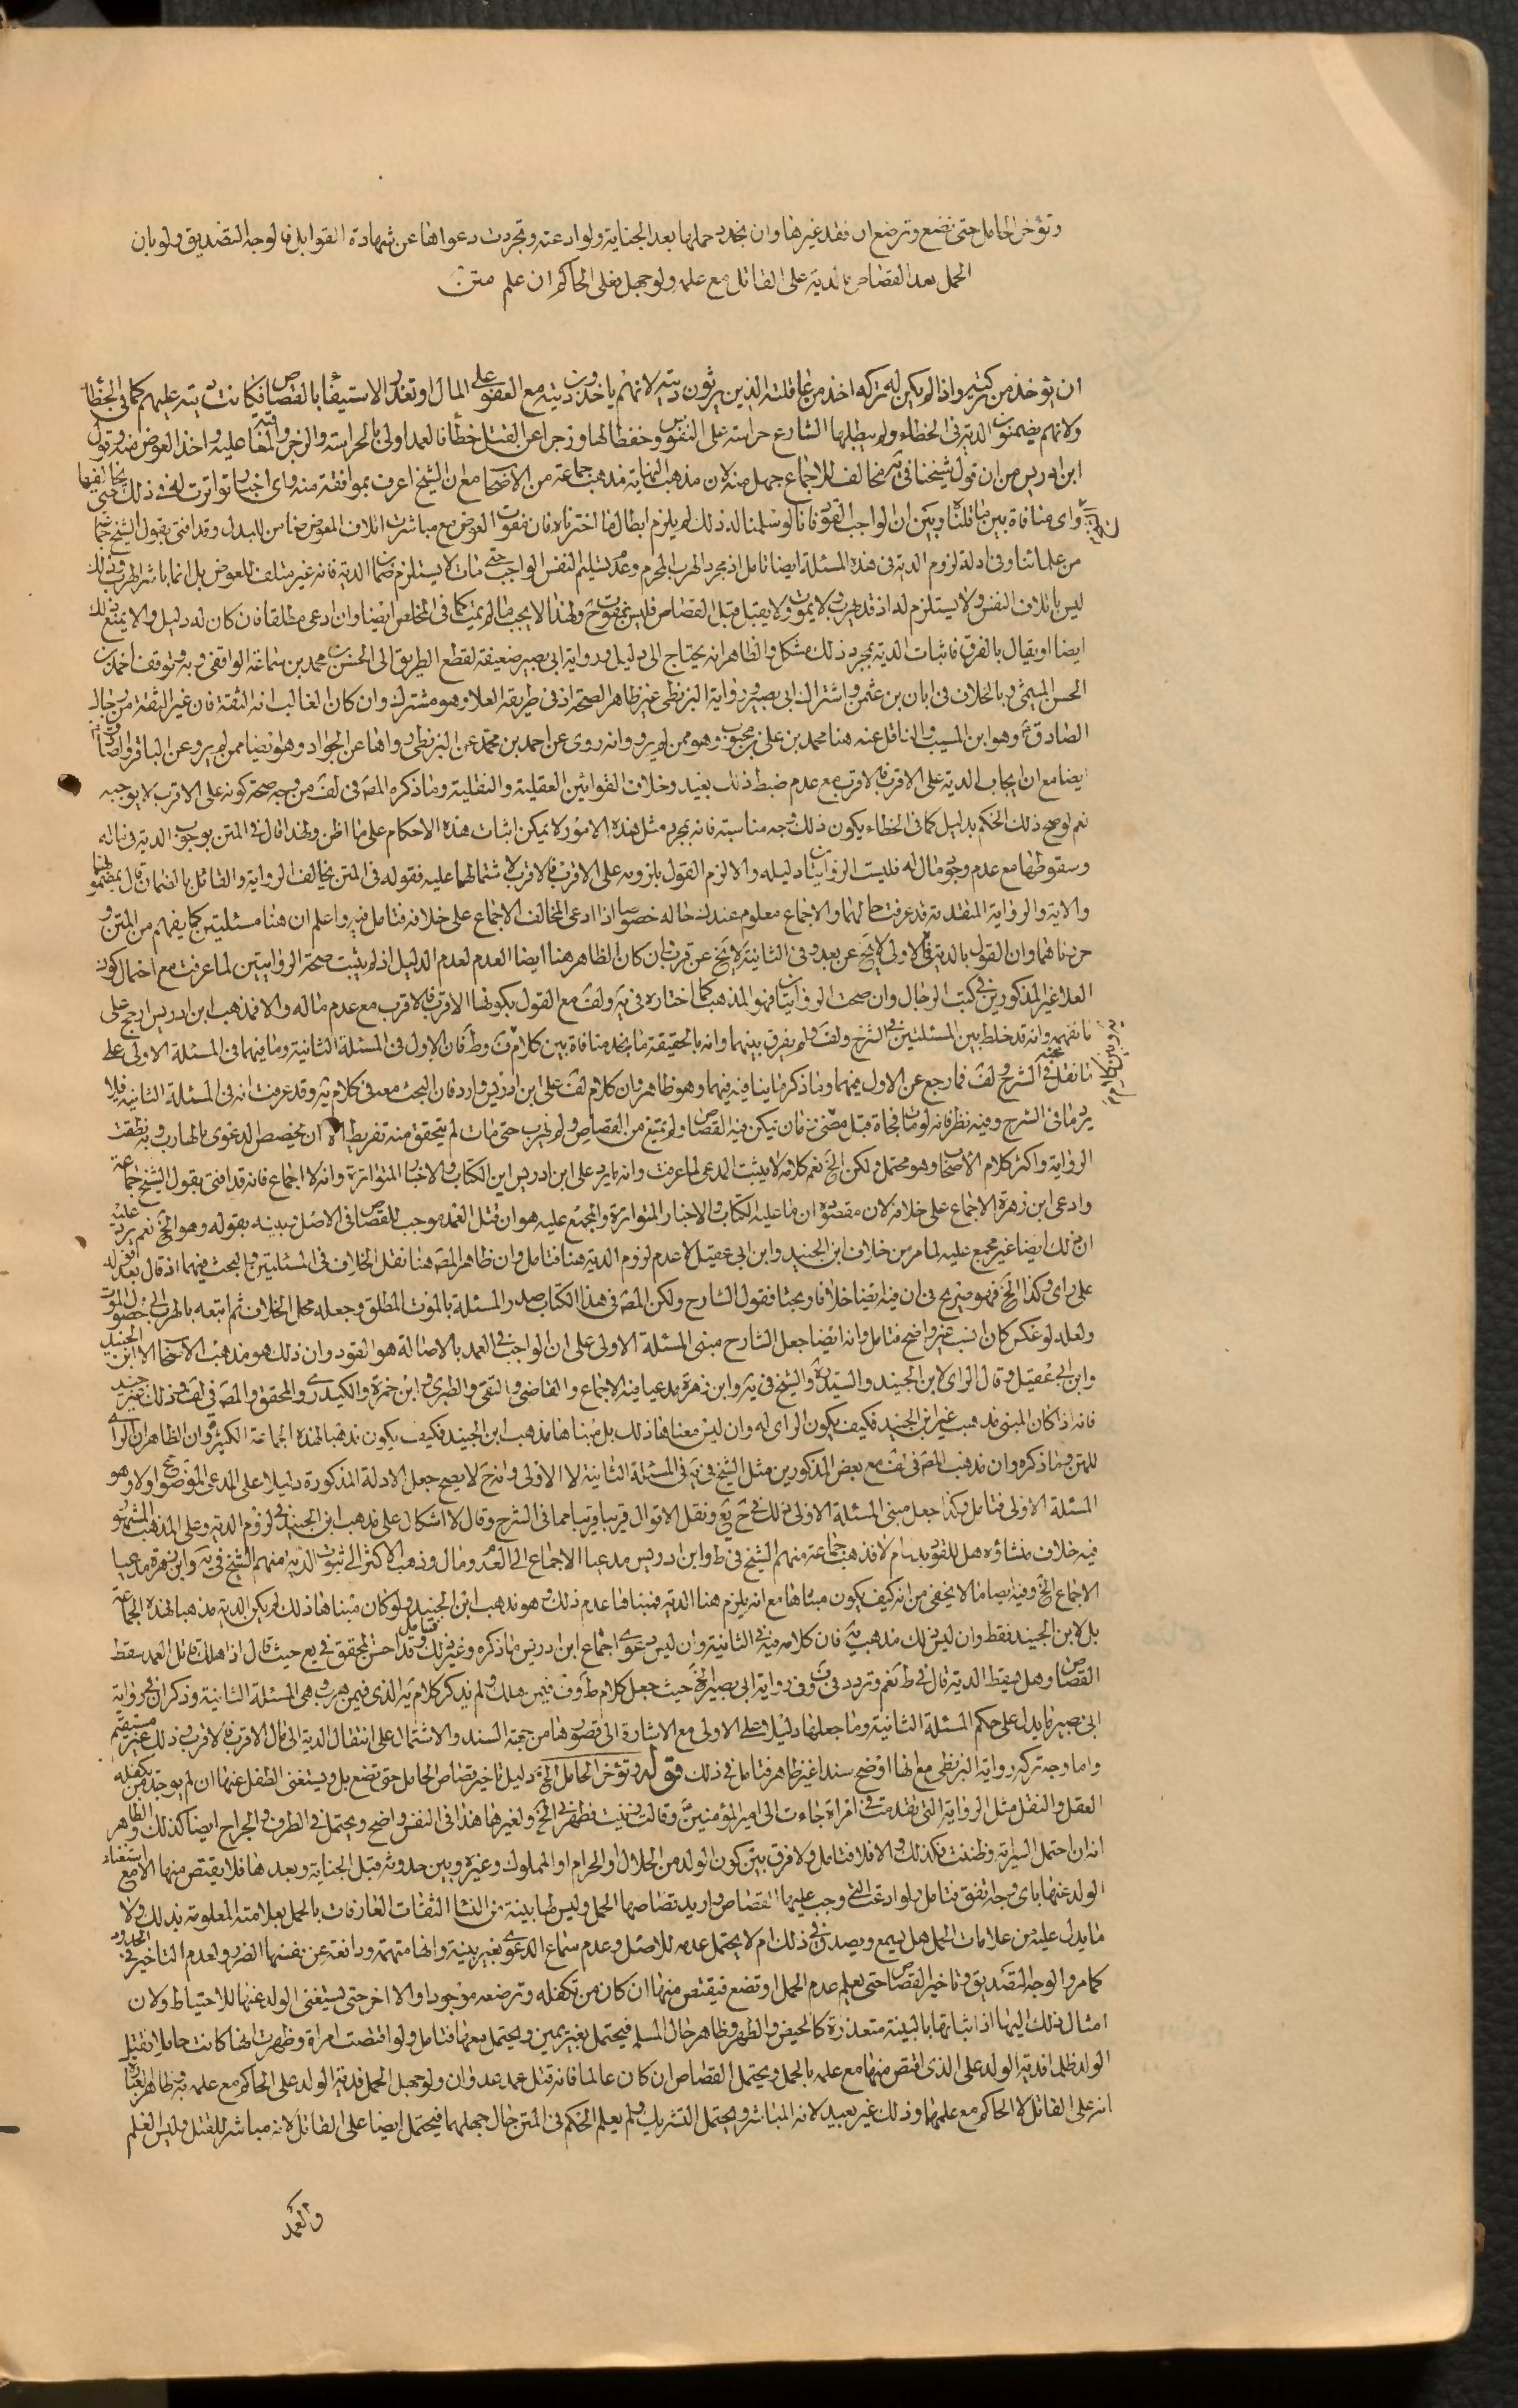 وتؤخر الحامل حتى تضع وترضع ان فقد غيرها وان تجدد حملها بعد الجناية ولو ادعته وتجردت دعواها عن شهادة القوابل فالوجه التصديق ولو بان
الحمل بعد القصاص فالدية على القاتل مع علمه ولو جهل فعلى الحاكم ان علم متن
ان يؤخذ من تركته واذا لم يكن له تركه اخذ من عاقلته الذين يرثون ديته لانهم ياخذون ديته مع العفو على المال او تعذر الاستيفاء بالقصاص فكانت ديته عليهم كما في الخطأ
ولانهم يضمنون الدية في الخطاء ولم يبطلها الشارع حراسته على النفوس وحفظا لها وزجرا عن القتل خطأ فالعمد اولى بالحراسة والزجر والمعاقبة عليه واخذ العوض منه وقول
ابن ادريس من ان قول شيخنا في يه مخالف للاجماع جهل منه لان مذهب النهاية مذهب جماعة من الاصحاب مع ان الشيخ اعرف بموافقته منه واى اخبار تواترت له في ذلك حتى يخالفها
واى منافاة بين ما قلناه وبين ان الواجب القود فانا لو سلمنا له ذلك لم يلزم ابطال ما اخترناه فان مفوت العوض مع مباشرت اتلاف المعوض ضامن للبدل وقد افتى بقول الشيخ جماعة
من علمائنا وفي ادلة لزوم الدية في هذه المسئلة ايضا تامل اذ مجرد الهرب المحرم وعدم تسليم النفس الواجب حتى مات لا يستلزم ضمان الدية فانه غير متلف للعوض بل انما باشر الهرب وذلك
ليس باتلاف النفس ولا يستلزم له اذ قد يهرب ولا يموت ولا يقتل قبل القصاص فليس بمفوت ح ولهذا لا يجب ما لم يمت كما في المخلص ايضا وان ادعى مطلقا فان كان له دليل والا يمنع ذلك
ايضا او يقال بالفرق فاثبات الدية بمجرد ذلك مشكل والظاهر انه يحتاج الى دليل ورواية ابى بصير ضعيفة لقطع الطريق الى الحسن بن محمد بن سماعة الواقفى وبه وتوقف احمد بن
الحسن الميثمى وبالخلاف في ابان بن عثمن واشتراك ابى بصير ورواية البزنطى غير ظاهر الصحة اذ في طريقه العلا وهو مشترك وان كان الغالب انه الثقة فان غير الثقة من رجال
الصادق ع وهو ابن المسيب والناقل عنه هنا محمد بن على بن محبوب وهو ممن لم يرو وانه روى عن احمد بن محمد عن البزنطى رواها عن الجواد وهو ايضا ممن لم يرو عن الباقر
ايضا مع ان ايجاب الدية على الاقرب فالاقرب مع عدم ضبط ذلك بعيد وخلاف القوانين العقلية والنقلية وما ذكره المصـ في لف من وجه صحة كونه على الاقرب لا يوجبه
نعم لو صح ذلك الحكم بدليل كما في الخطاء يكون ذلك وجه مناسبته فانه بمجرد مثل هذه الامور لا يمكن اثبات هذه الاحكام على ما اظن ولهذا قال في المتن بوجوب الدية في ماله
وسقوطها مع عدم وجود مال له فليست الروايتان دليله والا لزم القول بلزومه على الاقرب فالاقرب لاشتمالهما عليه فقوله في المتن يخالف الرواية والقائل بالضمان قال بمضمونهما
والاية والرواية المتقدمة قد عرفت حالهما والاجماع معلوم عندك حاله خصوصا اذا ادعى المخالف الاجماع على خلافه فتامل فيه واعلم ان هنا مسئلتين كما يفهم من المتن و
حررناهما وان القول بالدية في الاولى لا يخ عن بعد وفي الثانية لا يخ عن قرب وان كان الظاهر هنا ايضا العدم لعدم الدليل اذ لم يثبت صحة الروايتين لما عرفت مع احتمال كون
العلا غير المذكورين في كتب الرجال وان صحت الروايتان فهو المذهب كما اختاره في يه ولف مع القول بكونها الاقرب فالاقرب مع عدم ماله والا فمذهب ابن ادريس ارجح على
ما نفهم وانه قد خلط بين المسئلتين في الشرح ولف ولم يفرق بينهما وانه بالحقيقة ما نجد منافاة بين كلام ف وط فان الاول في المسئلة الثانية وما فيهما في المسئلة الاولى على
ما نقل في الشرح ولف فما رجع عن الاول فيهما وما ذكر ما ينافيه فيهما وهو ظاهر وان كلام لف على ابن ادريس وارد فان البحث معه في كلام يه وقد عرفت انه في المسئلة الثانية فلا
يرد ما في الشرح وفيه نظر فانه لو مات فجأة قبل مضى زمان يمكن فيه القصاص او لم يمتنع من القصاص ولم يهرب حتى مات لم يتحقق منه تفريط الا ان يخصص الدعوى بالهارب وبه نطقت
الرواية واكثر كلام الاصحاب وهو محتمل ولكن الخ نعم كلامه لا يثبت المدعى لما عرفت وانه ما يرد على ابن ادريس اين الكتاب والاخبار المتواترة وانه لا اجماع فانه قد افتى بقول الشيخ جماعة
وادعى ابن زهرة الاجماع على خلافه لان مقصوده ان ما عليه الكتاب والاخبار المتواترة والمجمع عليه هو ان قتل العمد موجب للقصاص في الاصل وبينه بقوله وهو الخ نعم يرد عليه
ان ذلك ايضا غير مجمع عليه لما مر من خلاف ابن الجنيد وابن ابى عقيل لا عدم لزوم الدية هنا فتامل وان ظاهر المصـ هنا نقل الخلاف في المسئلتين والبحث فيهما اذ قال بعد قوله
على راى وكذا الخ فهو صريح في ان فيه ايضا خلافا وبحثا فقول الشارح ولكن المصـ في هذا الكتاب صدر المسئلة بالموت المطلق وجعله محل الخلاف ثم اتبعه بالهرب الى حصول الموت
ولعله لو عكس كان انسب غير واضح فتامل وانه ايضا جعل الشارح مبنى المسئلة الاولى على ان الواجب في العمد بالاصالة هو القود وان ذلك هو مذهب الاصحاب الا ابن الجنيد
وابن ابى عقيل وقال الراى لابن الجنيد والسيد ره والشيخ في يه وابن زهرة مدعيا فيه الاجماع والقاضى والتقى والطبرى وابن حمزة والكيدرى والمحقق والمصـ في لف وذلك غير جيد
فانه اذا كان المبنى مذهب غير ابن الجنيد فكيف يكون الراى له وان ليس معناها ذلك بل مبناها مذهب ابن الجنيد فكيف يكون مذهبا لهذه الجماعة الكثيرة وان الظاهر ان الراى
للمتن وما ذكره وان مذهب المصـ في لف مع بعض المذكورين مثل الشيخ في يه في المسئلة الثانية لا الاولى وانه ح لا يصح جعل الادلة المذكورة دليلا على المدعى الموضح اولا وهو
المسئلة الاولى فتامل وكذا جعل مبنى المسئلة الاولى ذلك في ح يع ونقل الاقوال قريبا قريبا مما في الشرح وقال لا اشكال على مذهب ابن الجنيد في لزوم الدية وعلى المذهب المشهور
فيه خلاف منشاؤه هل للقود بدل ام لا فذهب جماعة منهم الشيخ في ط وابن ادريس مدعيا الاجماع الى العدم ومال وذهب الاكثر الى ثبوت الدية منهم الشيخ في يه وابن زهرة مدعيا
الاجماع الخ وفيه ايضا ما لا يخفى من انه كيف يكون مبناها مع انه يلزم هنا الدية فمبناها عدم ذلك وهو مذهب ابن الجنيد ولو كان مبناها ذلك لم يكن الدية مذهبا لهذه الجماعة
بل لابن الجنيد فقط وان ليس ذلك مذهب يه فان كلامه فيه في الثانية وان ليس دعوى اجماع ابن ادريس ما ذكره وغير ذلك فتامل وقد احسن المحقق في يع حيث قال اذا هلك قاتل العمد سقط
القصاص وهل يسقط الدية قال في ط نعم وتردد في ف وفي رواية ابى بصير الخ حيث جعل كلام ط وف فيمن هلك ولم يذكر كلام يه الذى فيمن هرب وهى المسئلة الثانية وذكر ان في رواية
ابى بصير ما يدل على حكم المسئلة الثانية وما جعلها دليلا على الاولى مع الاشارة الى قصورها من جهة السند والاشتمال على انتقال الدية الى مال الاقرب فالاقرب وذلك غير مستقيم
واما وجه تركه رواية البزنطى مع انها اوضح سندا غير ظاهر فتامل في ذلك قوله وتؤخر الحامل الخ دليل تاخير قصاص الحامل حتى تضع بل ويستغنى الطفل عنها ان لم يوجد من يكفله
العقل والنقل مثل الرواية التى تقدمت في امرأة جاءت الى امير المؤمنين ع وقالت زنيت فطهرنى الخ ولغيرها هذا في النفس واضح ويحتمل في الطرف والجراح ايضا كذلك والظاهر
انه ان احتمل السراية وظننت فكذلك والا فلا فتامل ولا فرق بين كون الولد من الحلال والحرام او المملوك وغيره وبين حدوثه قبل الجناية وبعدها فلا يقتص منها الا مع استغناء
الولد عنها باى وجه اتفق فتامل ولو ادعت التى وجب عليها القصاص واريد قصاصها الحمل وليس لها بينة من النساء الثقات العارفات بالحمل بعلامته المعلومة بذلك ولا
ما يدل عليه من علامات الحمل هل يسمع ويصدق في ذلك ام لا يحتمل عدمه للاصل وعدم سماع الدعوى بغير بينة وانها متهمة ودافعة عن نفسها الضرر ولعدم التاخير في الحدود
كما مر والوجه التصديق وتاخير القصاص حتى يعلم عدم الحمل او تضع فيقتص منها ان كان من تكفله وترضعه موجودا والا اخر حتى يستغنى الولد عنها للاحتياط ولان
امثال ذلك اليها اذ اثباتها بالبينة متعذرة كالحيض والطهر وظاهر حال المسلم فيحتمل بغير يمين ويحتمل معها فتامل ولو اقتصت امرأة وظهرت انها كانت حاملا فقتل
الولد ظلما فدية الولد على الذى اقتص منها مع علمه بالحمل ويحتمل القصاص ان كان عالما فانه قتل عمد عدوان ولو جهل الحمل فدية الولد على الحاكم مع علمه به وظاهر العبارة
انه على القاتل لا الحاكم مع علمهما وذلك غير بعيد لانه المباشر ويحتمل التشريك ولم يعلم الحكم في المتن حال جهلهما فيحتمل ايضا على القاتل لانه مباشر للقتل وليس العلم
والعمد